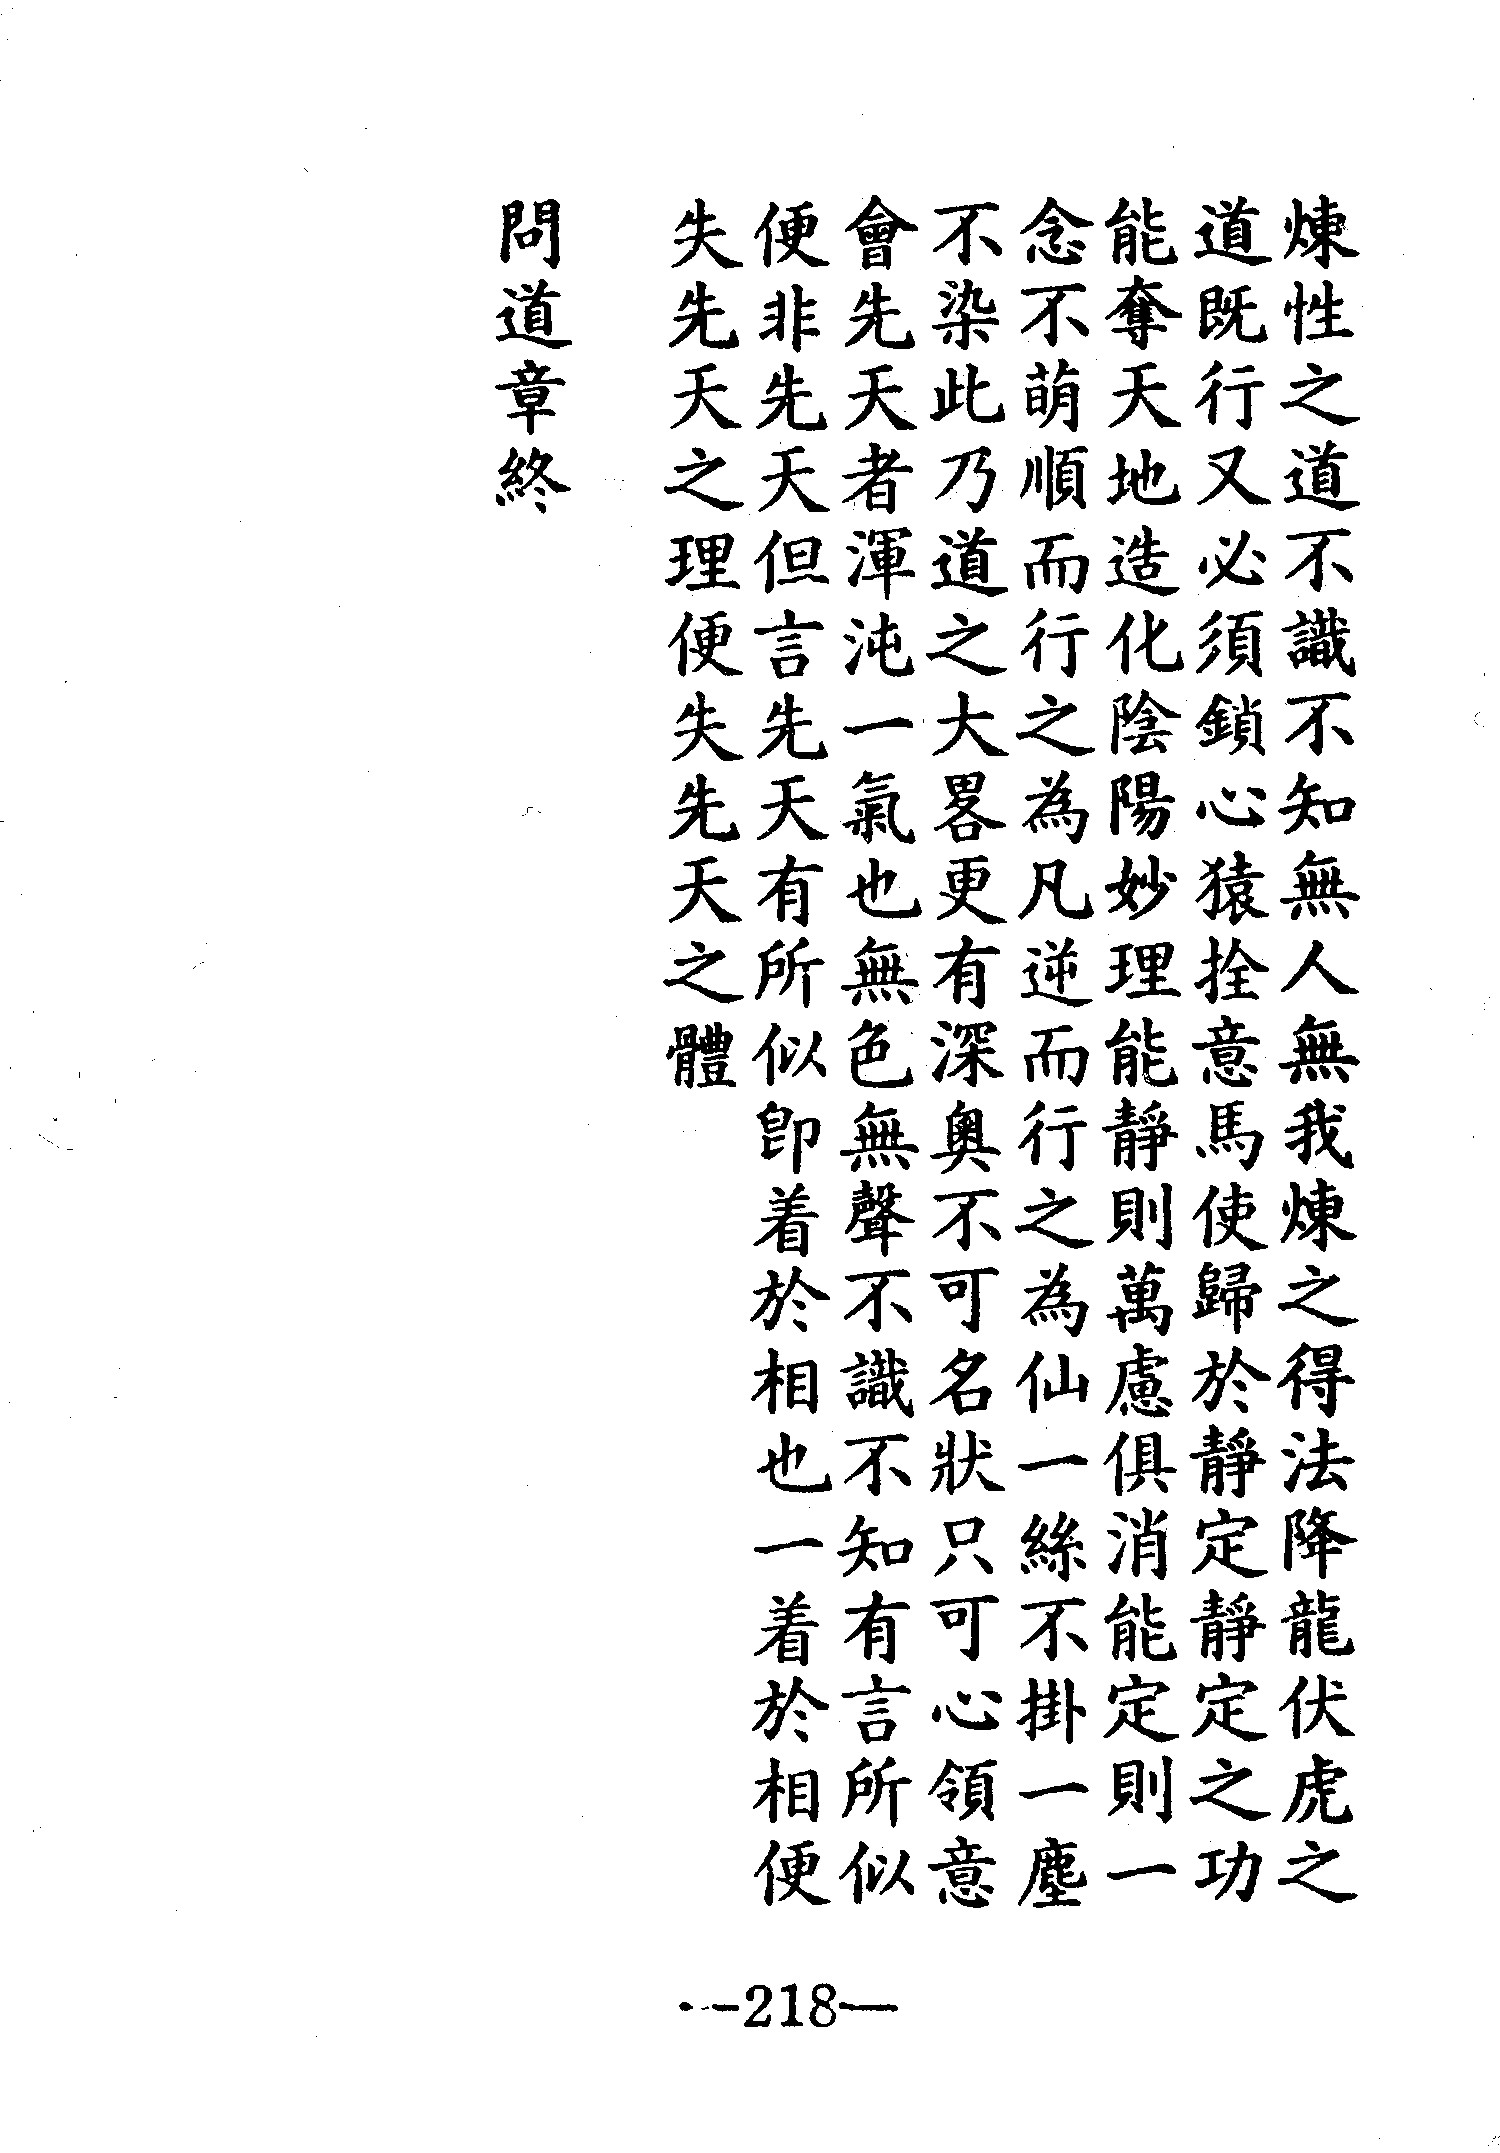 煉性之道不識不知無人無我煉之得法降龍伏虎之
道既行又必須鎖心猿拴意馬使歸於靜定靜定之功
能奪天地造化陰陽妙理能靜則萬慮俱消能定則一
念不萌順而行之為凡逆而行之為仙一絲不掛一塵
不染此乃道之大畧更有深奧不可名狀只可心領意
會先天者渾沌一氣也無色無聲不識不知有言所似
便非先天但言先天有所似卽着於相也一着於相便
失先天之理便失先天之體
問道章終
—218—